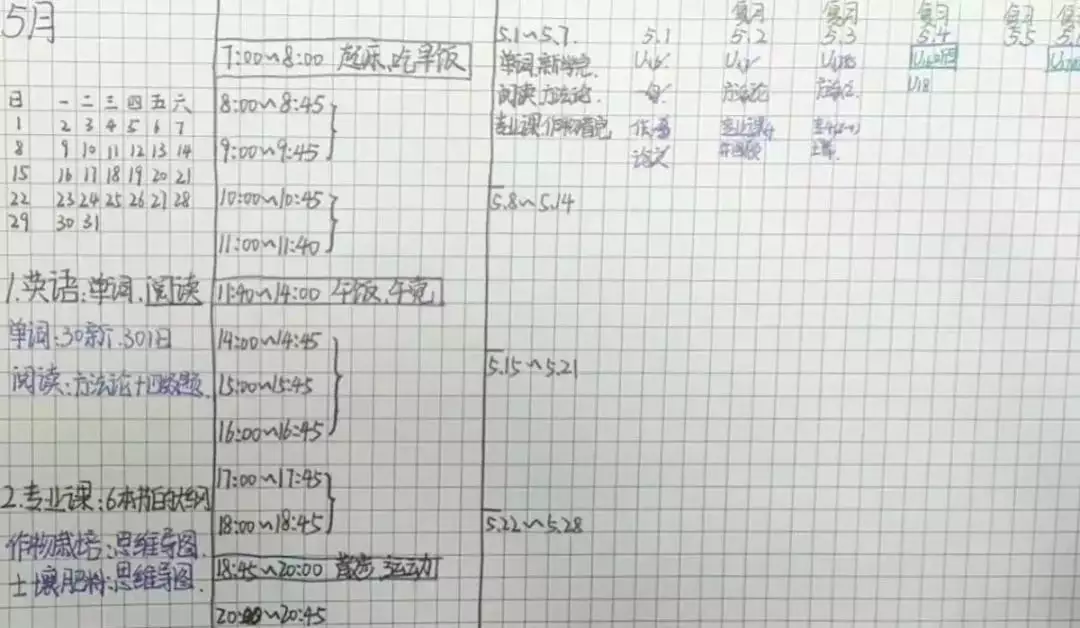 5月
日 一 二 三 四 五 六
1 2 3 4 5 6 7
8 9 10 11 12 13 14
15 16 17 18 19 20 21
22 23 24 25 26 27 28
29 30 31
1.英语:单词.阅读
单词:30新.30旧
阅读:方法论+四级题.
2.专业课:6本书的大纲
作物栽培:思维导图.
土壤肥料:思维导图.
7:00~8:00 起床,吃早饭
8:00~8:45
9:00~9:45
10:00~10:45
11:00~11:40
11:40~14:00 午饭,午觉
14:00~14:45
15:00~15:45
16:00~16:45
17:00~17:45
18:00~18:45
18:45~20:00 运动
20:00~20:45
复习 复习 复习 复习 复
5.1~5.7. 5.1 5.2 5.3 5.4 5.5
单词
阅读.方法论. 方法论
专业课 专业课
论文
U18
5.8~5.14
5.15~5.21
5.22~5.28